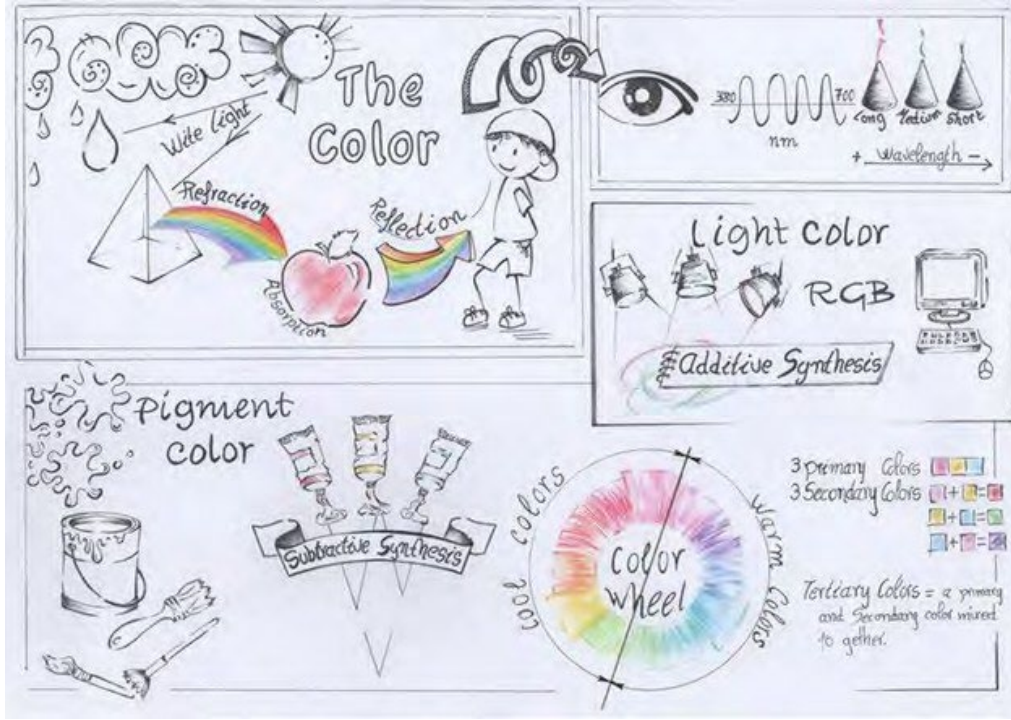 The
Color
Wite light
Refraction
Reflection
Absorption
380
700
nm
Long Medium Short
+ Wavelength -
Light Color
RGB
Additive Synthesis
Pigment
color
Subtractive Synthesis
cool colors
Color
wheel
Warm Colors
3 primary Colors
3 Secondary Colors
+ =
+ =
+ =
Tertiary Colors = a primary
and Secondary color mixed
to gether.